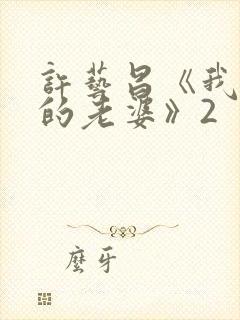 許藝昌《我
的老婆》2
麼牙